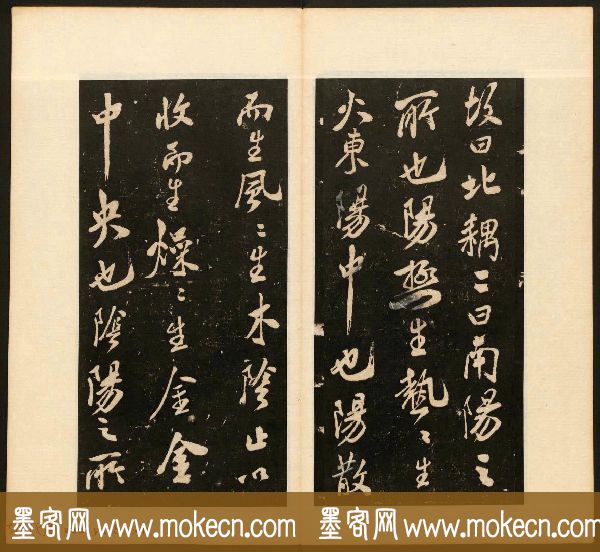 故曰北耦二曰南陽之
所也陽極生熱〻生
火東陽中也陽散
而生風〻生木陰止以
收而生燥〻生金金
中央也陰陽之所
墨客网 www.mokecn.com 墨客网 www.mokecn.com